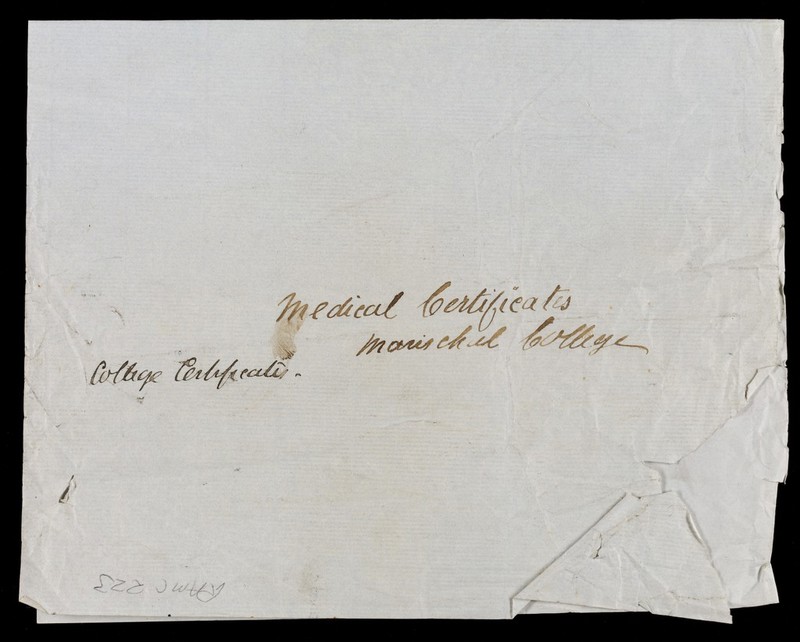 Medical Certificates
Marischal College
College Certificates.
RAMC 223